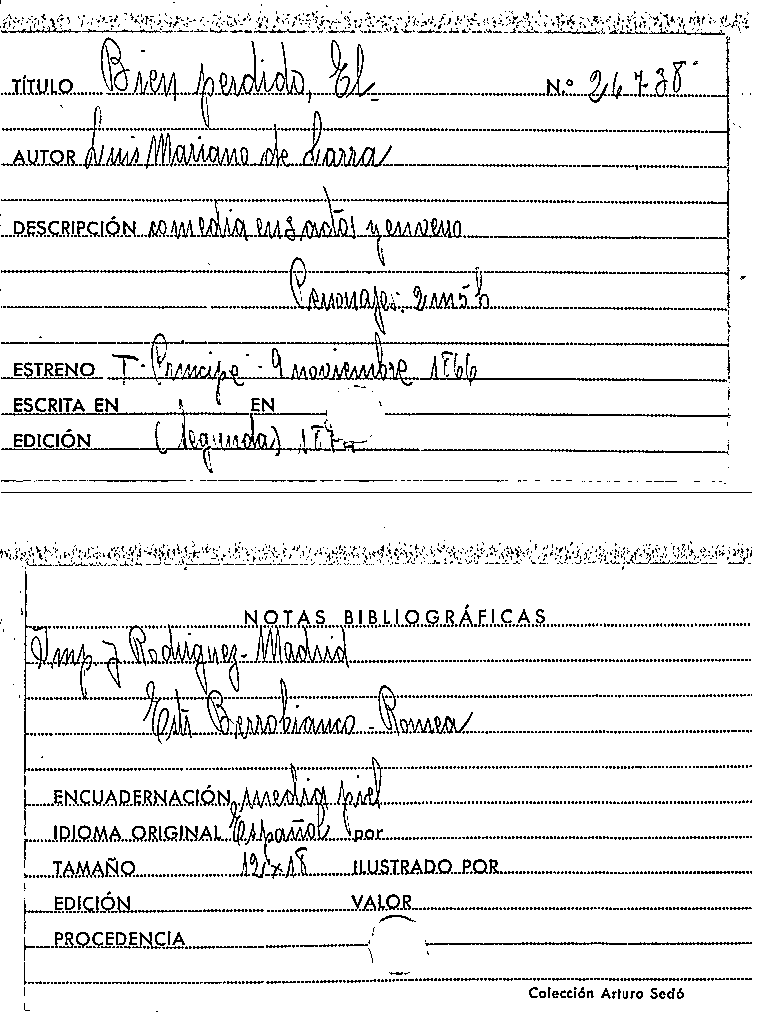 TÍTULO Bien perdido, El N.º 26738
AUTOR Luis Mariano de Larra
DESCRIPCIÓN comedia en 3 actos y en verso
Personajes: 2m 5h
ESTRENO T. Príncipe - 9 noviembre 1866
ESCRITA EN EN
EDICIÓN (segunda) 187
NOTAS BIBLIOGRÁFICAS
Imp J Rodriguez - Madrid
Berrobianco - Romea
ENCUADERNACIÓN media piel
IDIOMA ORIGINAL Español por
TAMAÑO 12x18 ILUSTRADO POR
EDICIÓN VALOR
PROCEDENCIA
Colección Arturo Sedó